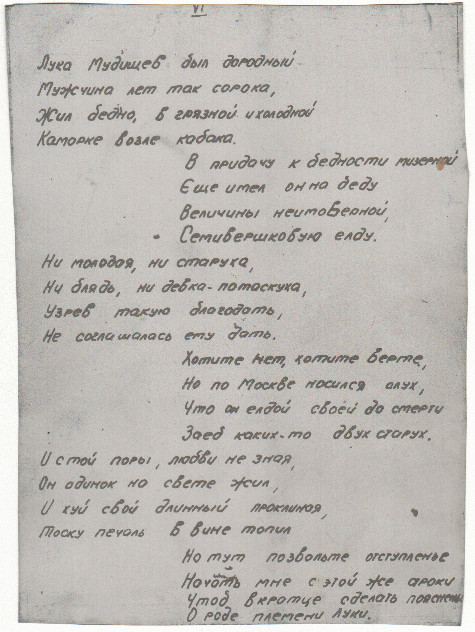 VI
Лука Мудищев был дородный
Мужчина лет так сорока,
Жил бедно, в грязной и холодной
Каморке возле кабака.
В придачу к бедности мизерной
Еще имел он на беду
Величины неимоверной,
Семивершковую елду.
Ни молодая, ни старуха,
Ни блядь, ни девка-потаскуха,
Узрев такую благодать,
Не соглашалась ему дать.
Хотите нет, хотите верте,
Но по Москве носился слух,
Что он елдой своей до смерти
Заеб каких-то двух старух.
И с той поры, любви не зная,
Он одинок на свете жил,
И хуй свой длинный проклиная,
Тоску печаль в вине топил
Но тут позвольте отступленье
Начать мне с этой же строки
Чтоб вкротце сделать пояснень
О роде племени Луки.